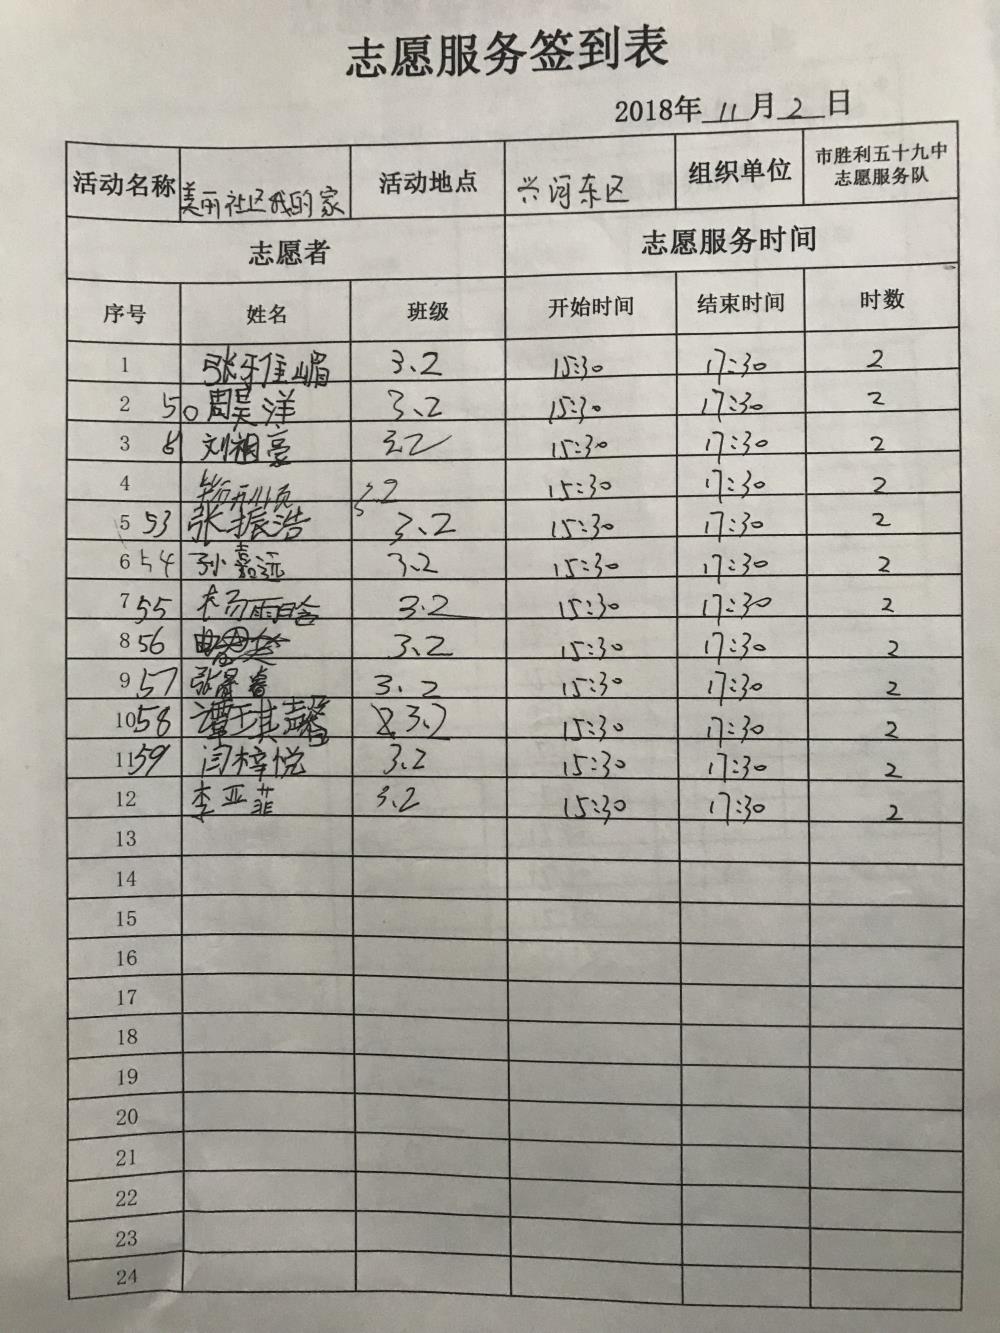 志愿服务签到表
2018年 11 月 2 日
活动名称 美丽社区我的家 活动地点 兴河东区 组织单位 市胜利五十九中志愿服务队
志愿者 志愿服务时间
序号 姓名 班级 开始时间 结束时间 时数
1 3.2 15:30 17:30 2
2 50 周昊洋 3.2 15:30 17:30 2
3 刘祖豪 3.2 15:30 17:30 2
4 3.2 15:30 17:30 2
5 53 张振浩 3.2 15:30 17:30 2
6 54 孙嘉远 3.2 15:30 17:30 2
7 55 杨雨晗 3.2 15:30 17:30 2
8 56 3.2 15:30 17:30 2
9 57 3.2 15:30 17:30 2
10 58 3.2 15:30 17:30 2
11 59 闫梓悦 3.2 15:30 17:30 2
12 李亚菲 3.2 15:30 17:30 2
13
14
15
16
17
18
19
20
21
22
23
24